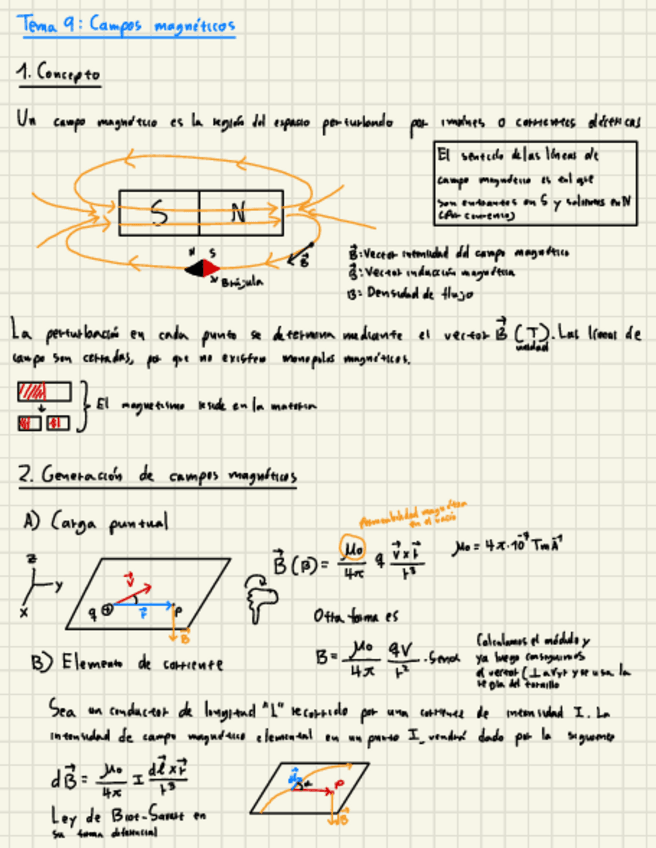 Tema 9: Campos magnéticos
1. Concepto
Un campo magnético es la región del espacio perturbando por imanes o corrientes eléctricas
El sentido de las líneas de
campo magnético es tal que
son entrantes en S y salientes en N
(Por convenio)
S N
N S
Brújula
B
B: Vector intensidad del campo magnético
B: Vector inducción magnética
B: Densidad de flujo
La perturbación en cada punto se determina mediante el vector B (T). Las líneas de
unidad
campo son cerradas, por que no existen monopolos magnéticos.
El magnetismo reside en la materia
2. Generación de campos magnéticos
A) Carga puntual
Permeabilidad magnética
en el vacío
B(P) = μ₀/4π q v×r/r³
μ₀ = 4π·10⁻⁷ TmA⁻¹
z
y
x
v
q
r
P
B
Otra forma es
B = μ₀/4π qV/r² · Senα
Calculamos el módulo y
ya luego conseguimos
el vector (⊥ a v y r y se usa la
regla del tornillo
B) Elemento de corriente
Sea un conductor de longitud "L" recorrido por una corriente de intensidad I. La
intensidad de campo magnético elemental en un punto I, vendrá dado por la siguiente
dB = μ₀/4π I dl×r/r³
α
P
B
Ley de Biot-Savart en
su forma diferencial